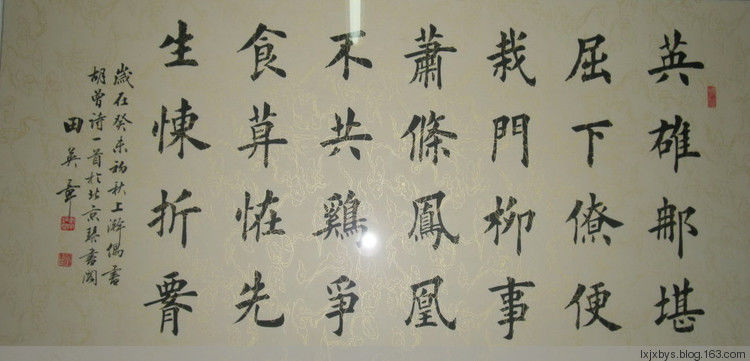 英雄那堪
屈下僚便
栽門柳事
蕭條鳳凰
不共鷄爭
食莫恠先
生懶折腰
歲在癸未初秋上澣偶書
胡曾诗一首於北京琴書閣
田英章
lxjxbys.blog.163.com